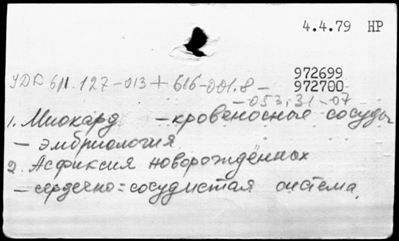 4.4.79 НР
972699
УДК 611.127-013+616-001.8- 972700
-053.31-07
1. Миокард - кровеносные сосуды
- эмбриология
2. Асфиксия новорождённых
- сердечно=сосудистая система.